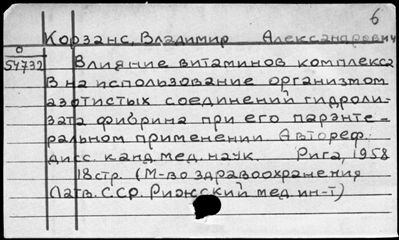 6
Корзанс, Владимир Александрович
0
54732 Влияние витаминов комплекса
В на использование организмом
азотистых соединений гидроли-
зата фибрина при его парэнте-
ральном применении Автореф.
дисс. канд. мед. наук. Рига, 1958
18 стр. (М-во здравоохранения
Латв. ССР. Рижский мед. ин-т)